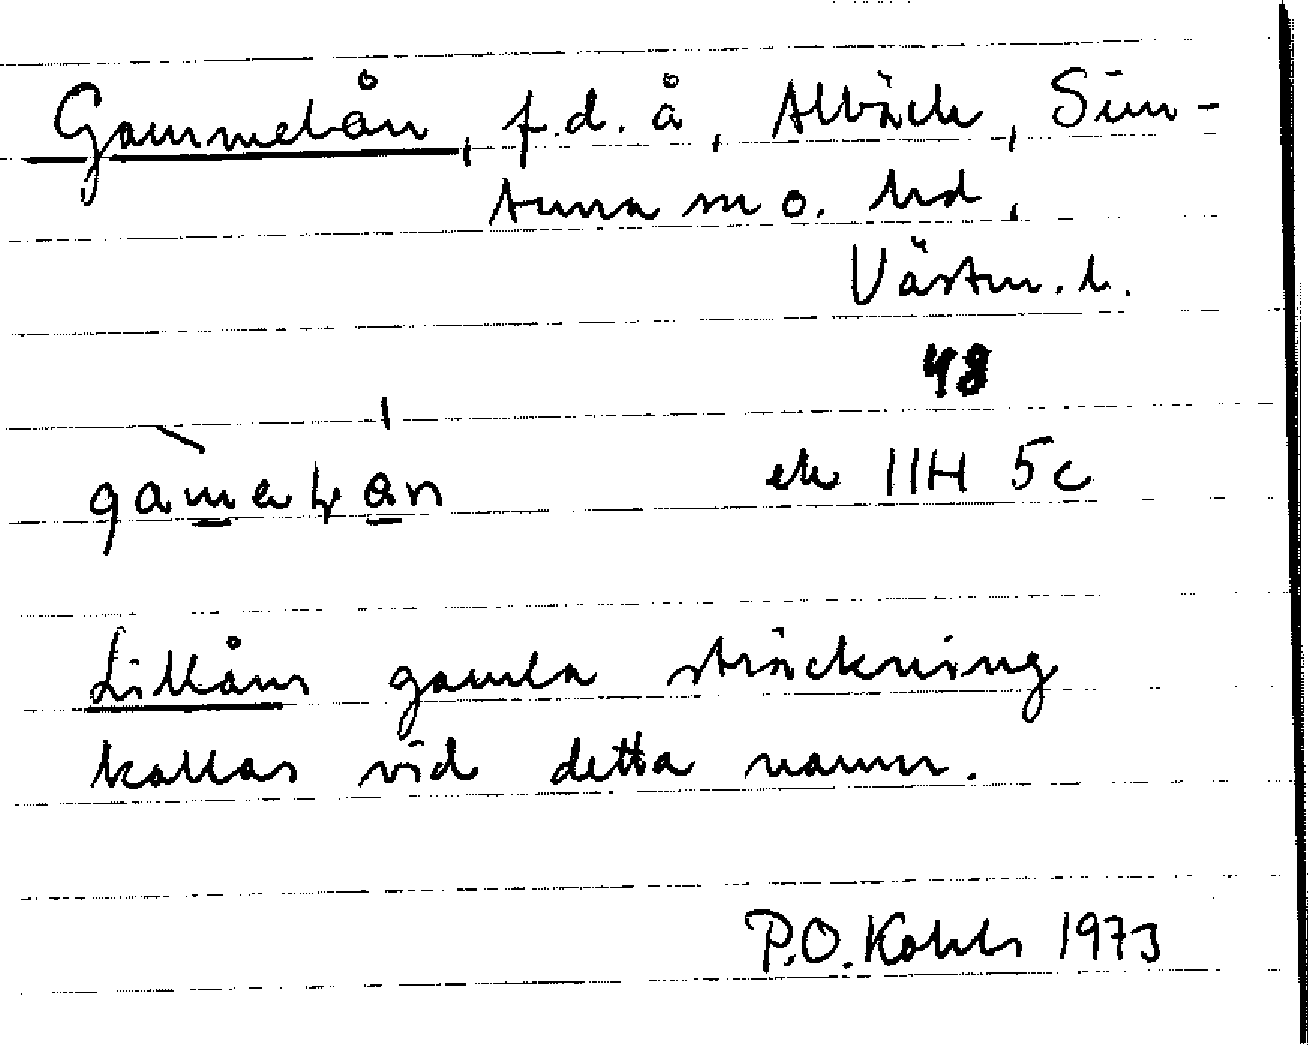 Gammelån, f.d. å, Allbäck, Sim-
tuna sn o. hd,
Västm. l.
48
ek 11H 5c
Lillåns gamla sträckning
kallas vid detta namn.
P.O. Kohls 1973